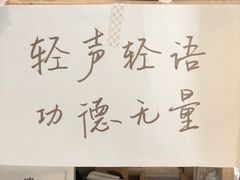 轻声轻语
功德无量